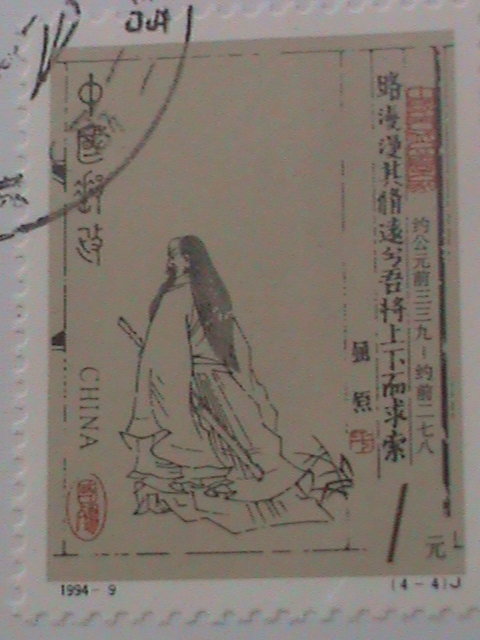 中國郵政
CHINA
路漫漫其脩遠兮吾將上下而求索
约公元前三三九－约前二七八
屈原
1元
1994-9
(4-4)J